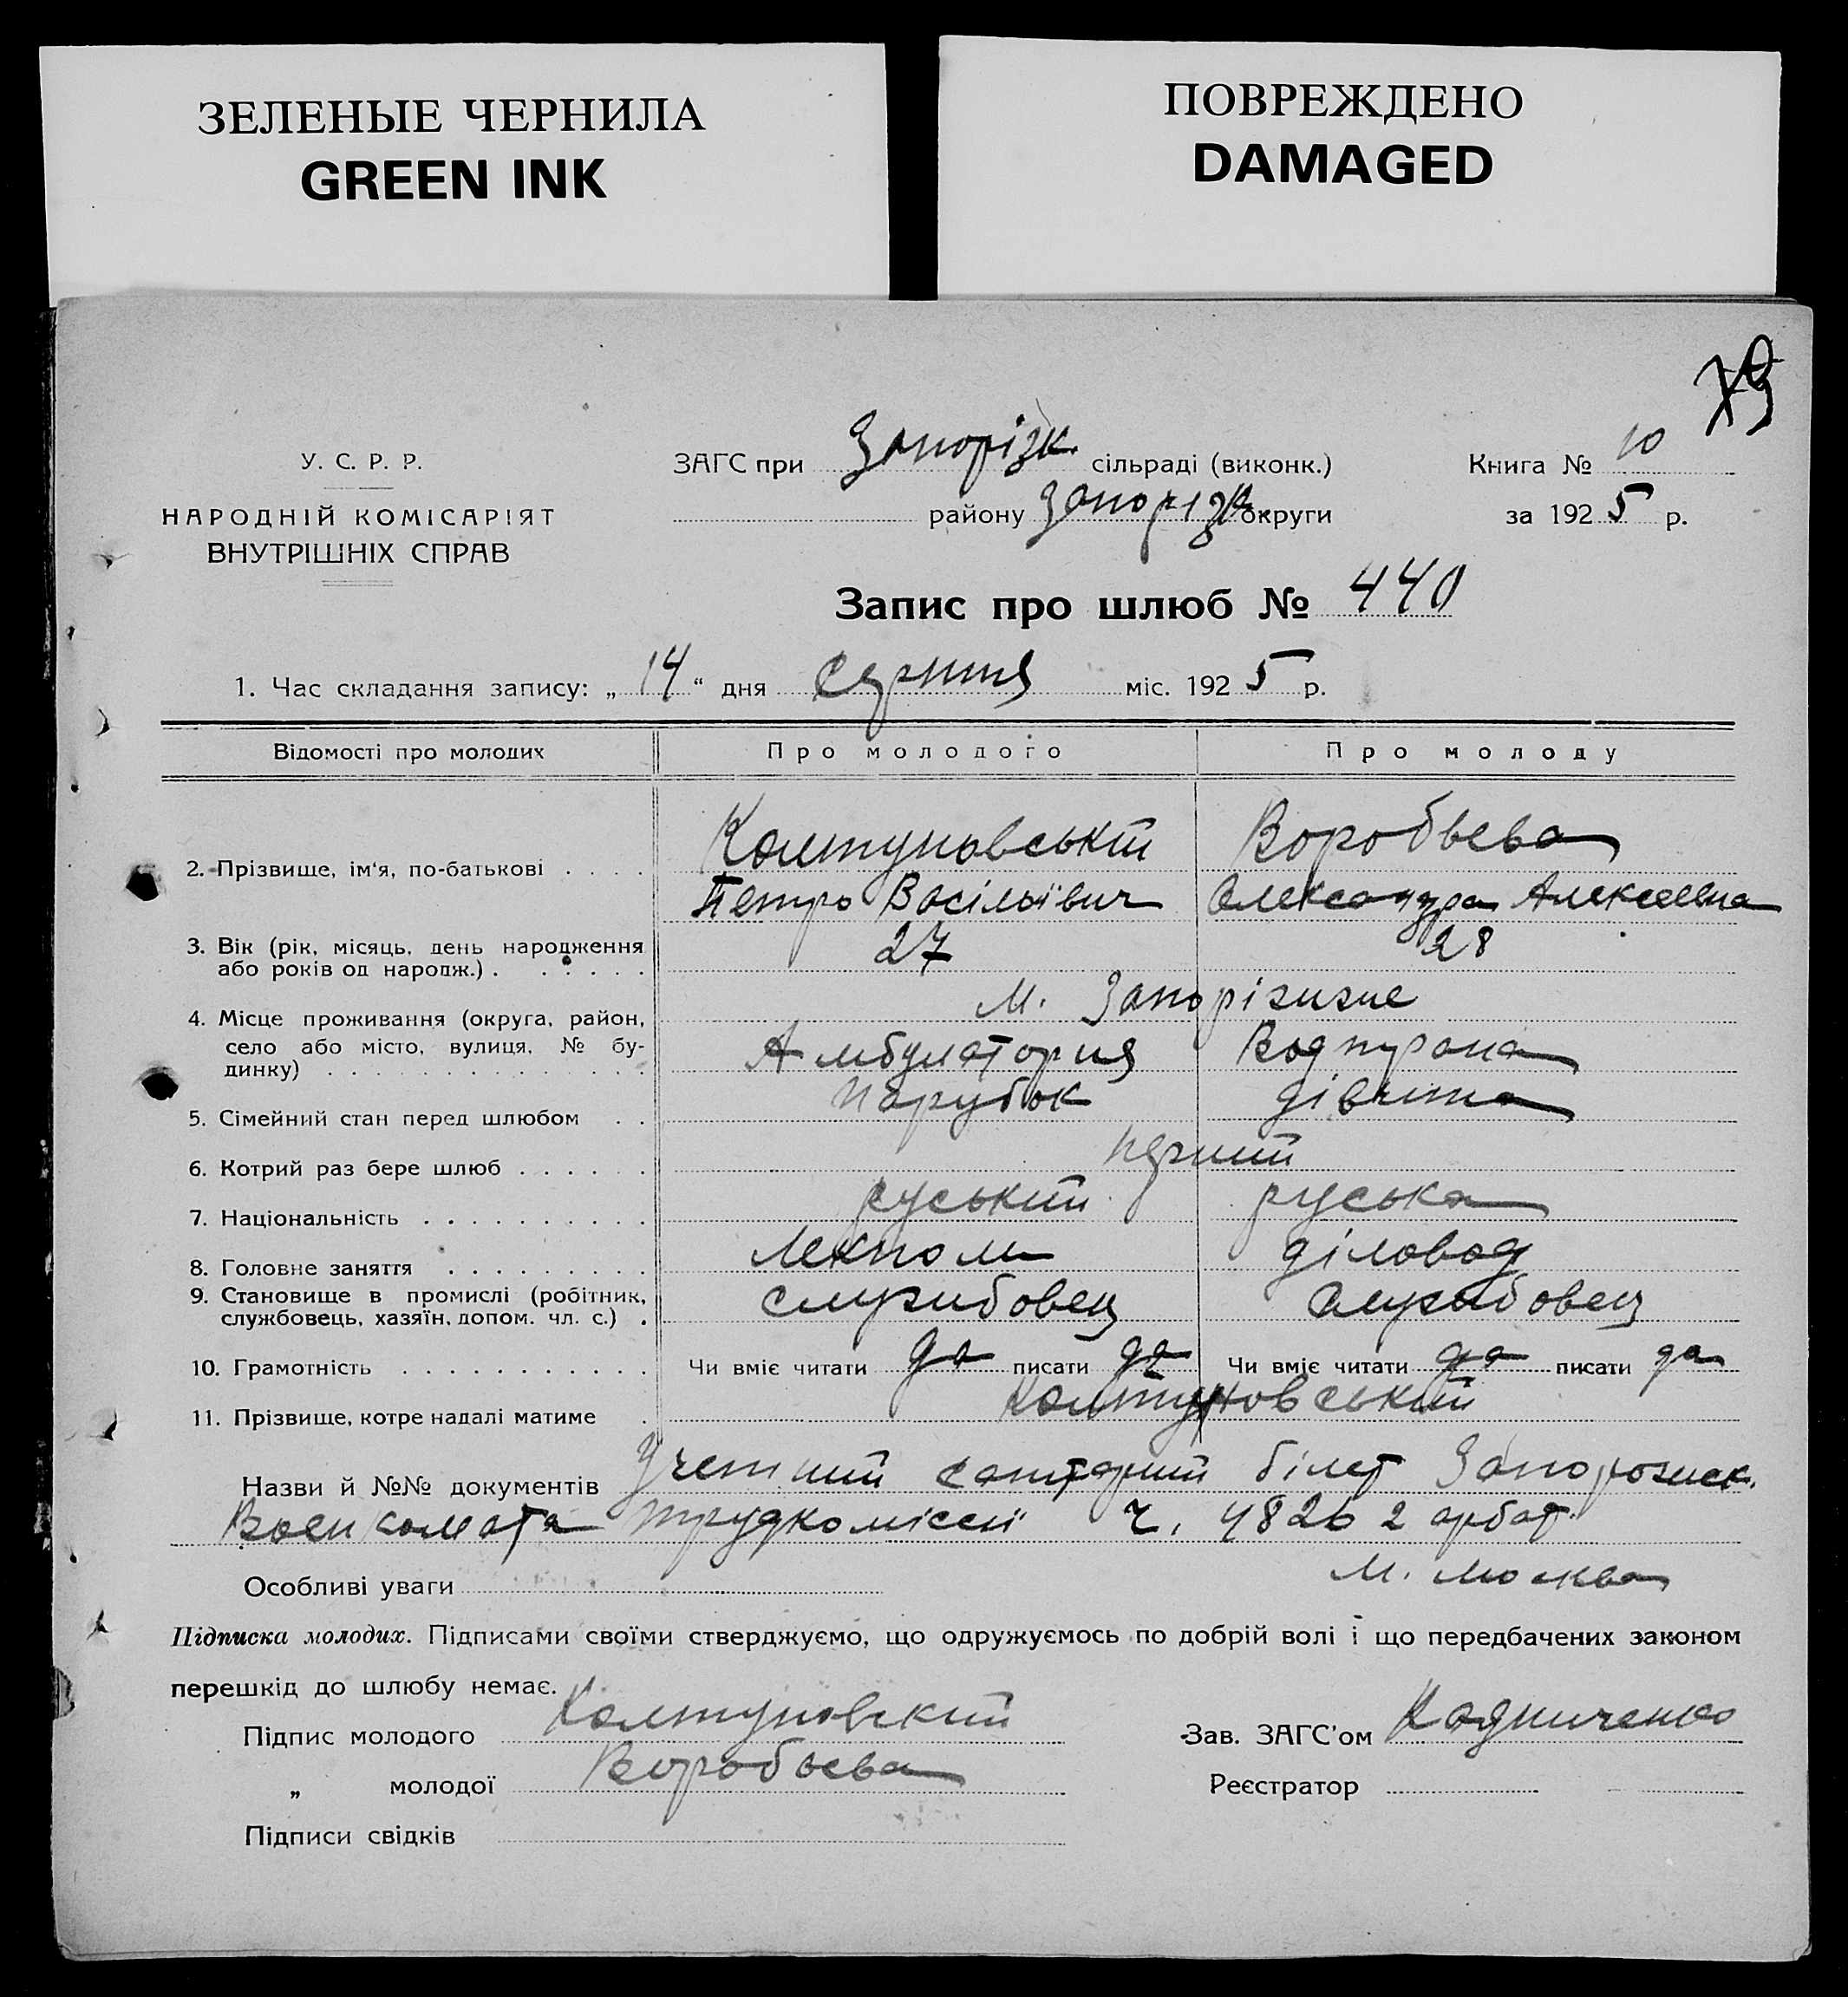 ЗЕЛЕНЫЕ ЧЕРНИЛА
GREEN INK
ПОВРЕЖДЕНО
DAMAGED
79
У. С. Р. Р.
НАРОДНІЙ КОМІСАРІЯТ
ВНУТРІШНІХ СПРАВ
ЗАГС при Запорізк. сільраді (виконк.)
району Запорізк. округи
Книга № 10
за 1925 р.
Запис про шлюб № 440
1. Час складання запису: „14“ дня серпня міс. 1925 р.
Відомості про молодих Про молодого Про молоду
2. Прізвище, ім'я, по-батькові . . . . Колтуновський Воробьева
Петро Васільївич Олександра Алексеевна
3. Вік (рік, місяць, день народження або років од народж.) . . . . . . 27 28
4. Місце проживання (округа, район, село або місто, вулиця, № будинку) . . . м. Запоріжже
Амбулатория
5. Сімейний стан перед шлюбом . . Парубок дівчина
6. Котрий раз бере шлюб . . . . . . перший
7. Національність . . . . . . . . . . руський руська
8. Головне заняття . . . . . . . . . Лекпом діловод
9. Становище в промислі (робітник, службовець, хазяїн, допом. чл. с.) . службовец службовец
10. Грамотність . . . . . . . . . . . Чи вміє читати да писати да Чи вміє читати да писати да
11. Прізвище, котре надалі матиме . Колтуновський
Назви й №№ документів Учетний білет Запорожск.
Военкомата трудкоміссії ч. 4826 2 арбат.
Особливі уваги м. Москва
Підписка молодих. Підписами своїми стверджуємо, що одружуємось по добрій волі і що передбачених законом
перешкід до шлюбу немає.
Підпис молодого Колтуновский
„ молодої Воробьева
Зав. ЗАГС'ом
Реєстратор
Підписи свідків